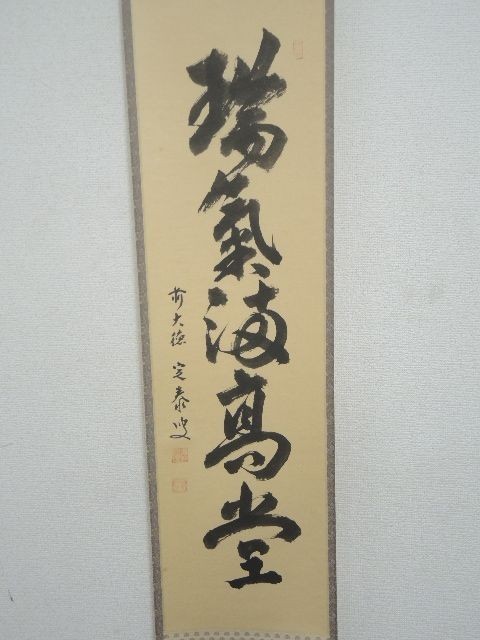 瑞氣満高堂
前大徳 定泰叟